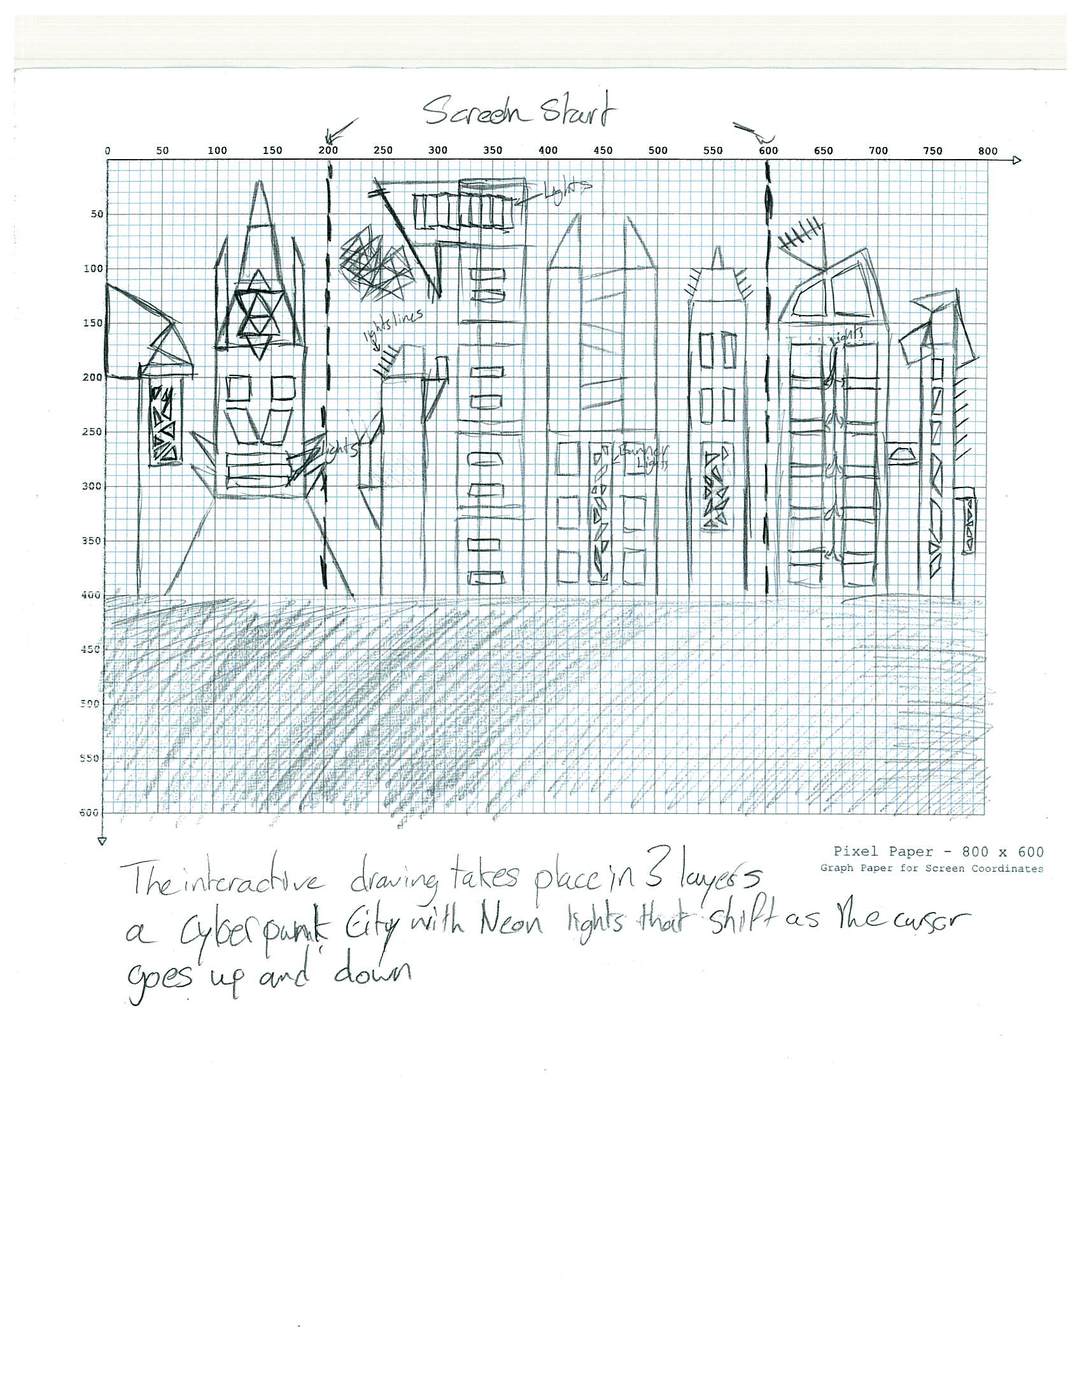 Screen Start
0 50 100 150 200 250 300 350 400 450 500 550 600 650 700 750 800
50
Lights
100
150
lights lines
Lights
200
250
Lights
Banner
Lights
300
350
400
450
500
550
600
Pixel Paper - 800 x 600
Graph Paper for Screen Coordinates
The interactive drawing takes place in 3 layers
a Cyberpunk City with Neon lights that shift as the cursor
goes up and down